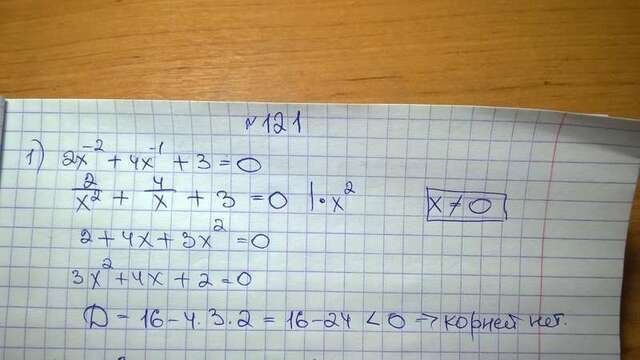 №121
1) 2x⁻² + 4x⁻¹ + 3 = 0
2/x² + 4/x + 3 = 0 |·x² x ≠ 0
2 + 4x + 3x² = 0
3x² + 4x + 2 = 0
D = 16 - 4·3·2 = 16 - 24 < 0 → корней нет.